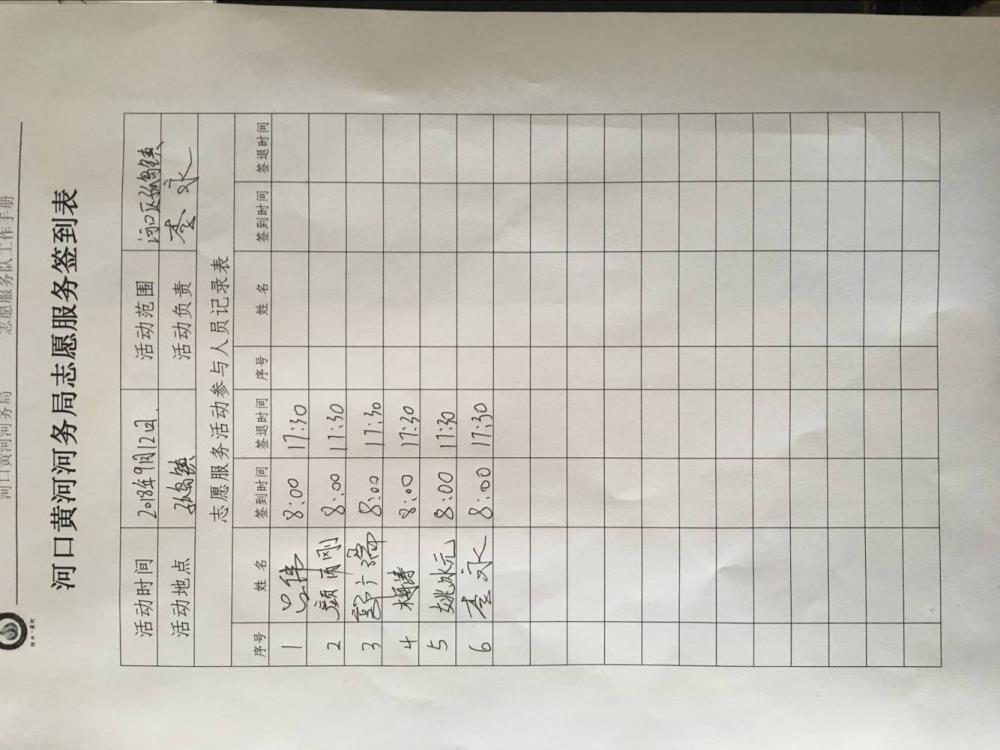 河口黄河河务局 志愿服务队工作手册
河口黄河河务局志愿服务签到表
活动时间 2018年9月12日. 活动范围 河口区孤岛镇
活动地点 孤岛镇 活动负责 李永
志愿服务活动参与人员记录表
序号 姓名 签到时间 签退时间 序号 姓名 签到时间 签退时间
1 吕伟 8:00 17:30
2 颜丙刚 8:00 17:30
3 8:00 17:30
4 梅涛 8:00 17:30
5 姚冰元 8:00 17:30
6 李永 8:00 17:30